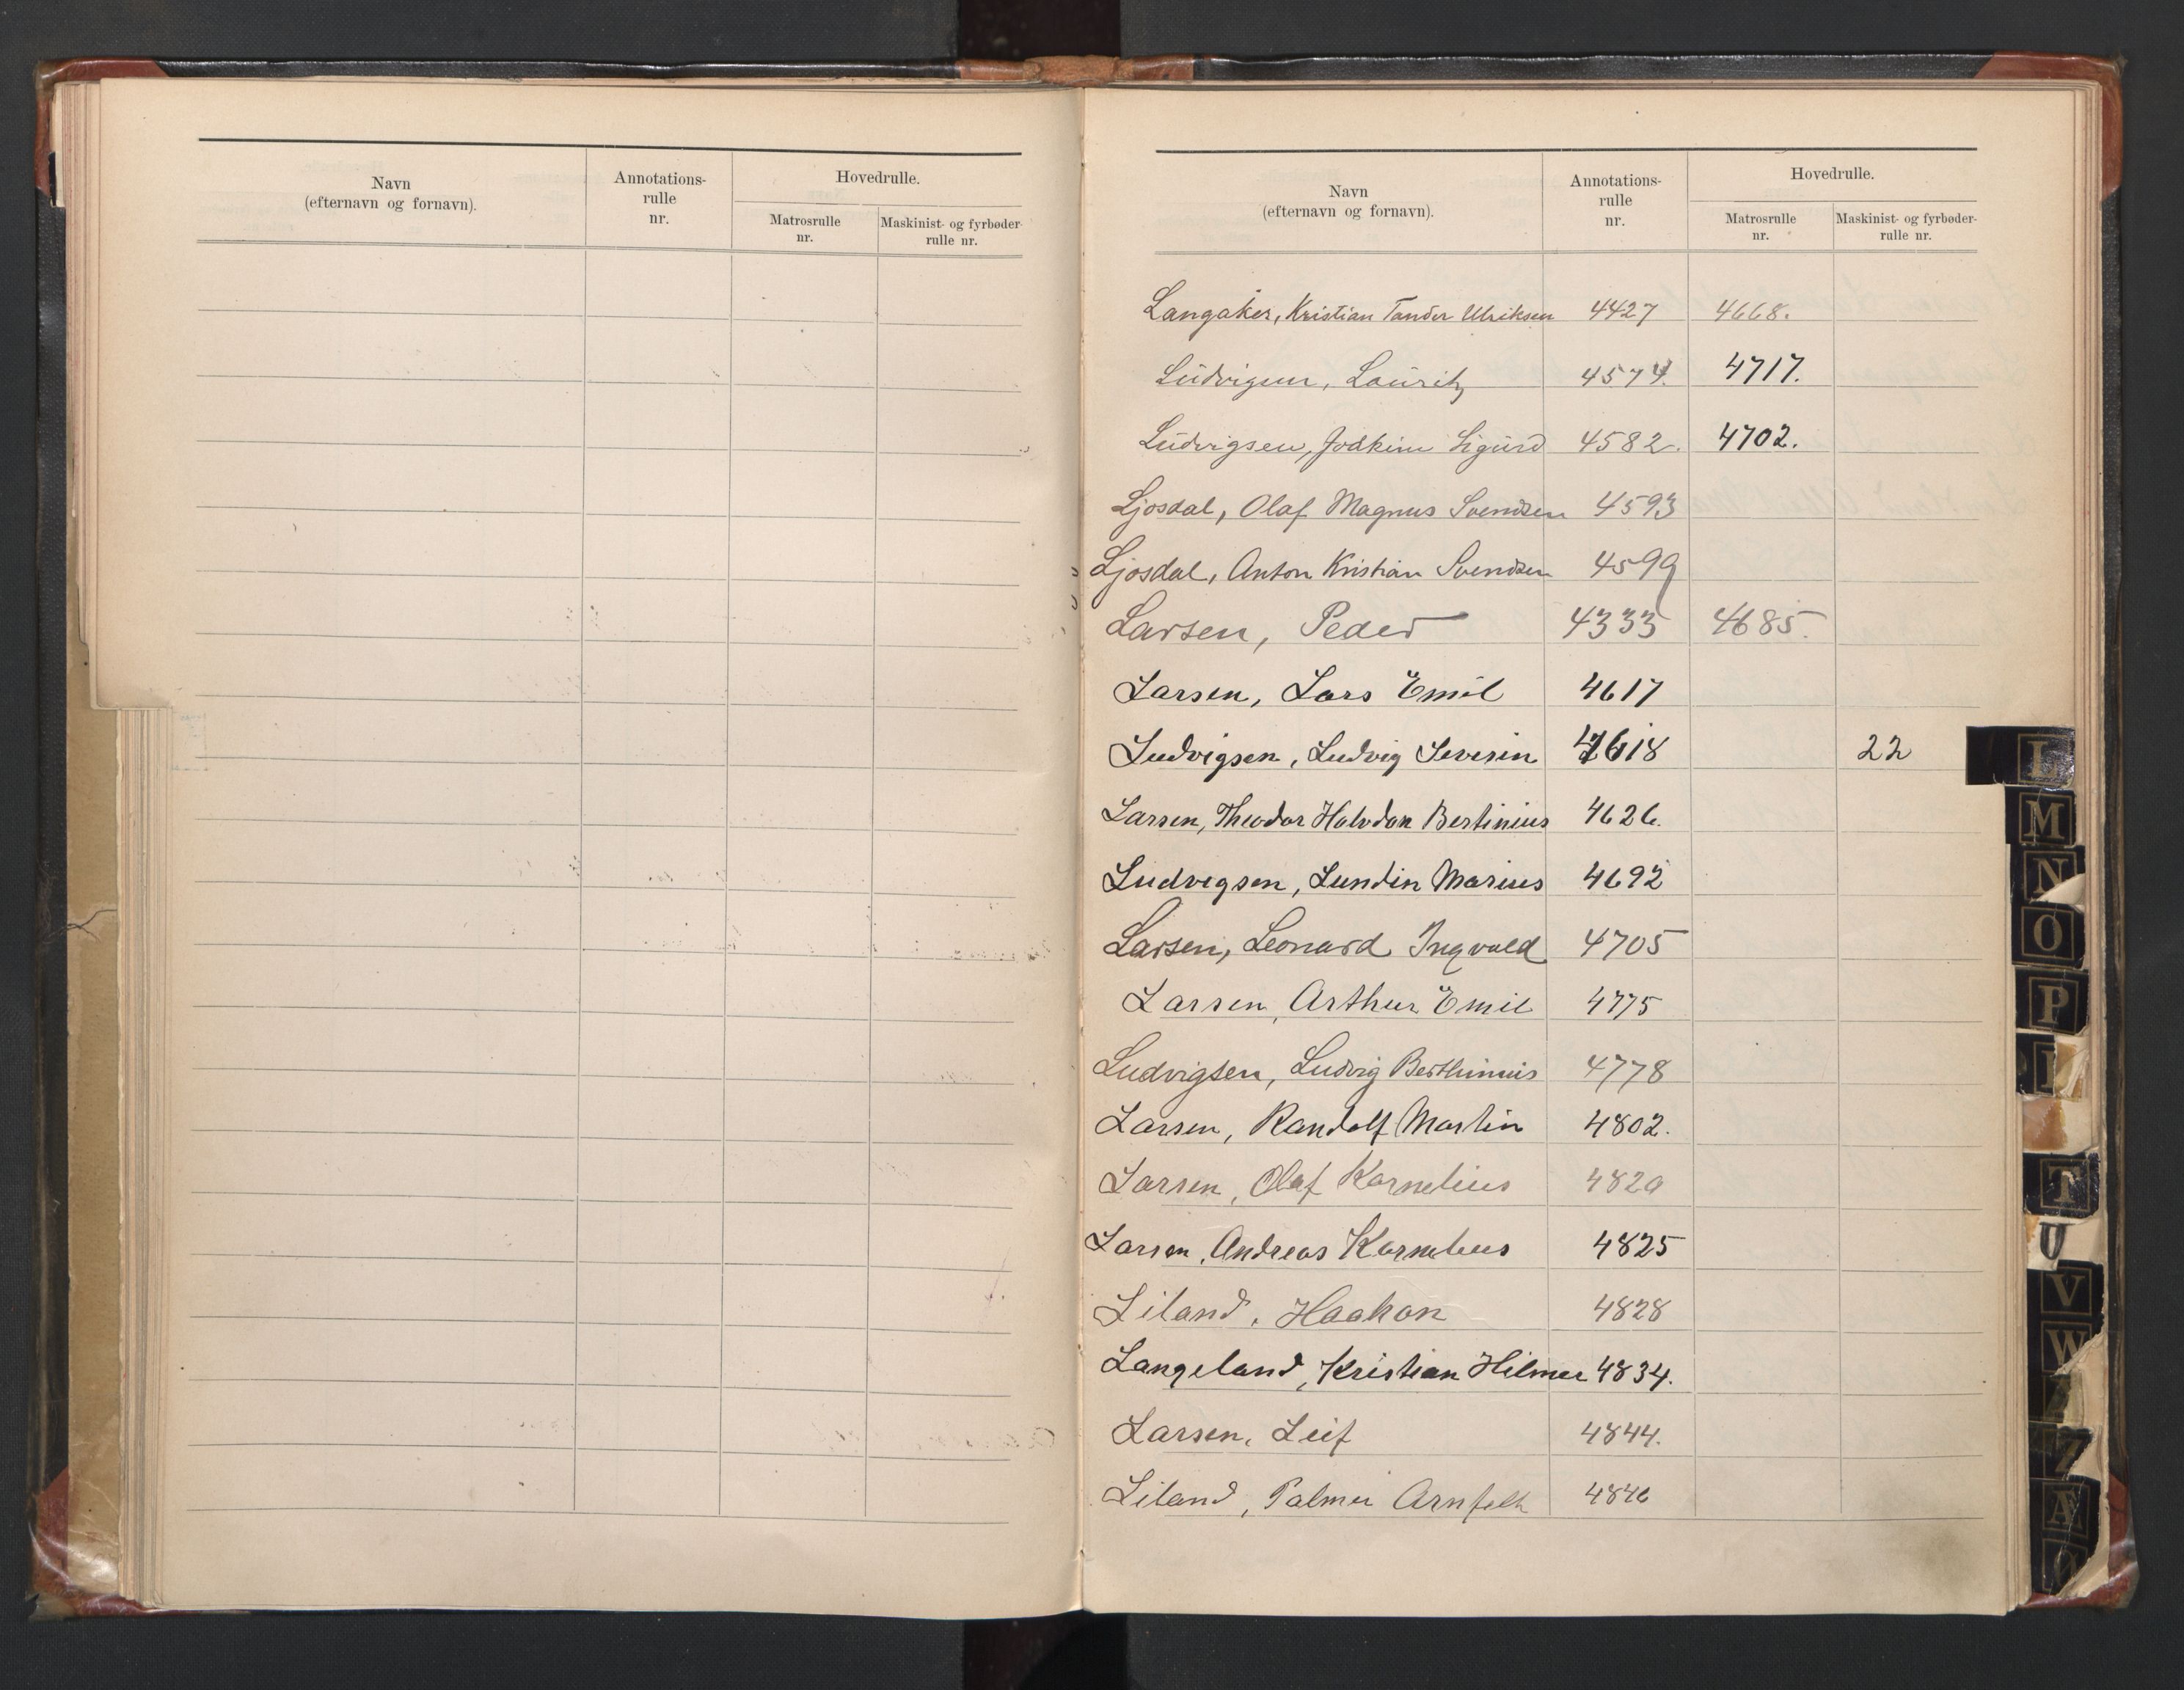 Navn
(efternavn og fornavn).
Annotations-
rulle
nr.
Hovedrulle.
Matrosrulle
nr.
Maskinist- og fyrbøder-
rulle nr.
Navn
(efternavn og fornavn).
Annotations-
rulle
nr.
Hovedrulle.
Matrosrulle
nr.
Maskinist- og fyrbøder-
rulle nr.
Langaker, Kristian Tander Ulriksen 4427 4668.
Ludvigsen, Lauritz 4574. 4717.
Ludvigsen, Joakim Sigurd 4582. 4702.
Ljosdal, Olaf Magnus Svendsen 4593
Ljosdal, Anton Kristian Svendsen 4599
Larsen, Peder 4333 4685.
Larsen, Lars Emil 4617
Ludvigsen, Ludvig Severin 4618 22
Larsen, Theodor Halvdan Bertinius 4626.
Ludvigsen, Lundin Marius 4692
Larsen, Leonard Ingvald 4705
Larsen, Arthur Emil 4775
Ludvigsen, Ludvig Berthinius 4778
Larsen, Randolf Martin 4802.
Larsen, Olaf Kornelius 4820
Larsen, Andreas Kornelius 4825
Liland, Haakon 4828
Langeland, Kristian Hilmer 4834.
Larsen, Leif 4844.
Liland, Palmer 4846
L
M
N
O
P
T
U
V
W
Z
Æ